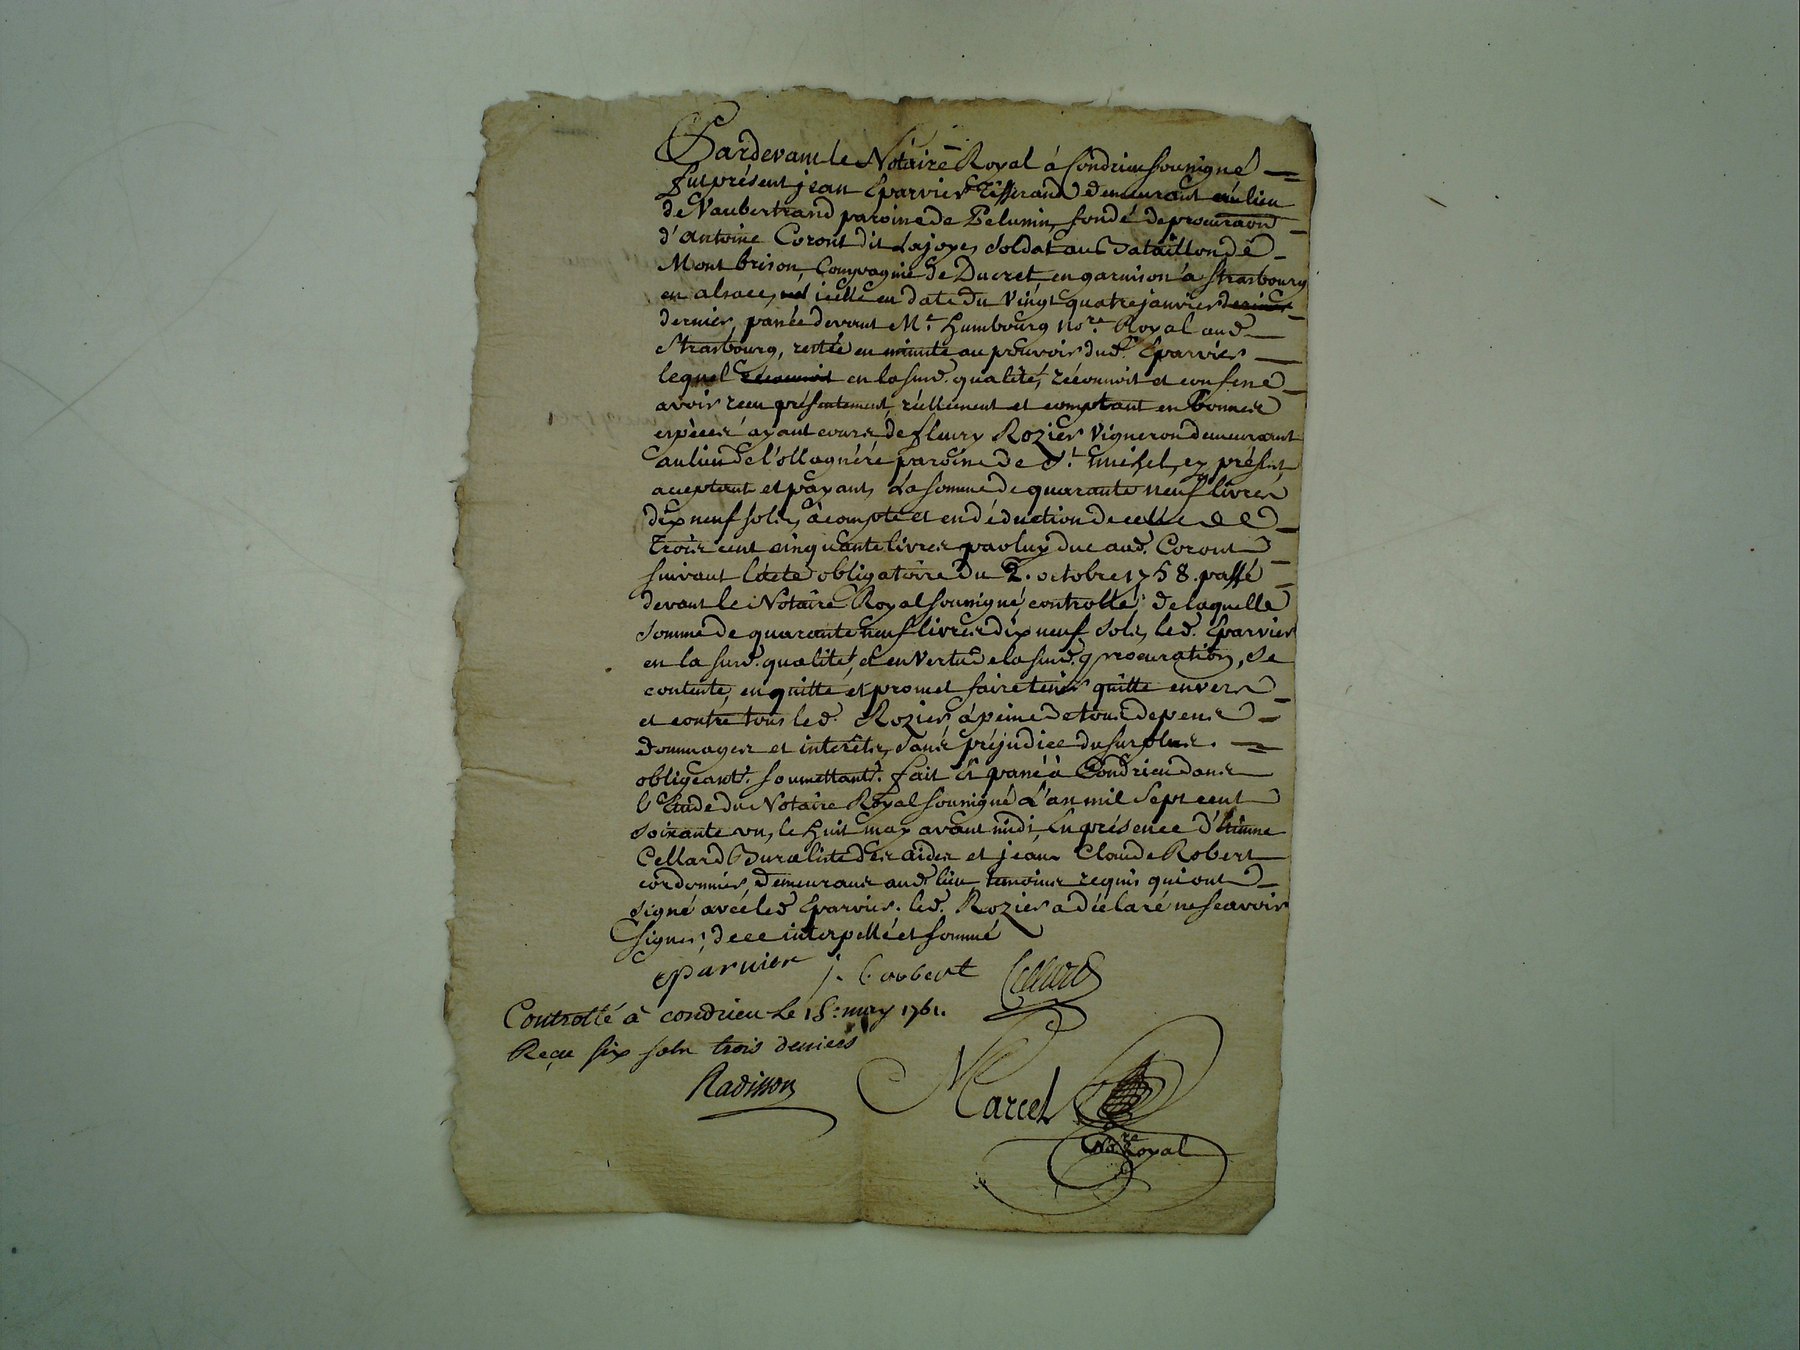 Pardevant le Notaire Royal à Condrieu soussigné
fut présent jean Eparvier Tisserand demeurant au lieu
de Vaubertrand paroisse de Pelussin, fondé de procuraon
d'antoine Coront dit Lajoye, soldat au Bataillon de
Montbrison, Compagnie de Ducret, en garnison à Strasbourg
en alsace, icelle en date du Vingt quatre janvier
dernier, passée devant Me. humbourg nore. Royal aud.
Strasbourg, restée en minute au pouvoir dud. Eparvier
lequel en la susd. qualité, réconnoit et confesse
avoir reçu présentement, réellement et comptant en bonnes
espèces ayant cours de fleury Rozier Vigneron demeurant
au lieu de l'ollagnére paroisse de St. michel, cy présent
acceptant et payant, La somme de quarante neuf livres
dix neuf sols, àcompte et en déduction de celle de
trois cent cinquante livres par luy due aud. Coront
suivant l'acte obligatoire du 2. octobre 1758. passé
devant le Notaire Royal soussigné, controllé; de laquelle
somme de quarante neuf livres dix neuf sols, led. Eparvier
en la susd. qualité, et en Vertu de la susd. procuration, se
contente, en quitte et promet faire tenir quitte envers
et contre tous led. Rozier, à peine de tous depens
dommages et interêts, sans préjudice du surplus.
obligeant. soumettant. fait et passé à Condrieu dans
l'Etude du Notaire Royal soussigné L'an mil sept cent
soixante un, le huit may avant midi, En présence d'Etienne
Cellard Buraliste des aides et jean Claude Robert
cordonnier, demeurans aud. lieu, temoins requis qui ont
signé avec led. Eparvier. led. Rozier a déclaré ne sçavoir
signer, de ce interpellé et sommé
eparvier j. C. robert Cellard
Controllé à condrieu le 18: may 1761.
Reçu six sols trois deniers
Radisson
Marcel
Nore. Royal